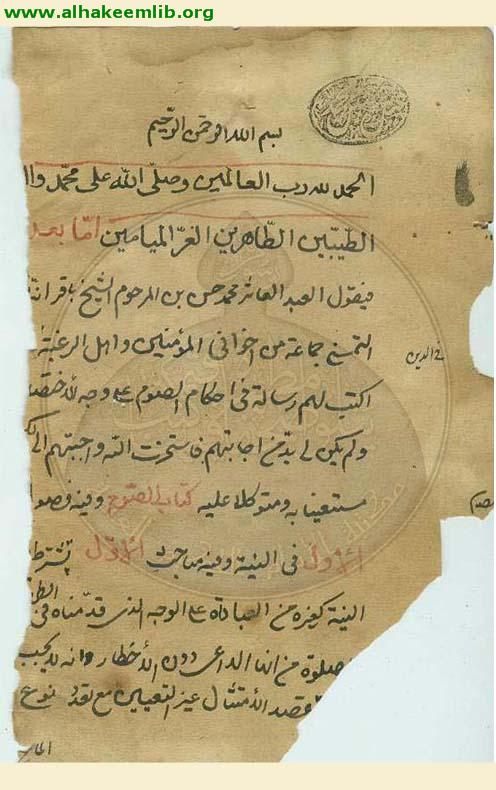 www.alhakeemlib.org
بسم الله الرحمن الرحيم
الحمد لله رب العالمين وصلى الله على محمد وا
الطيبين الطاهرين الغر الميامين اما بعد
فيقول العبد العاثر محمد حسن بن المرحوم الشيخ باقر انه
التمس مني جماعة من اخواني المؤمنين واهل الرغبة
في الدين
اكتب لهم رسالة في احكام الصوم على وجه الاختصا
ولم يكن لي بد من اجابتهم فاستخرت الله واجبتهم الى
مستعينا به ومتوكلا عليه كتاب الصوم وفيه فصو
الاول في النية وفيه مباحث الاول يشترط
النية كغيره من العبادات على الوجه الذي قدمناه في
صلوة من انها الداعي دون الاخطار وانه لا يجب
قصد الامتثال عن التعيين مع تعدد نوع